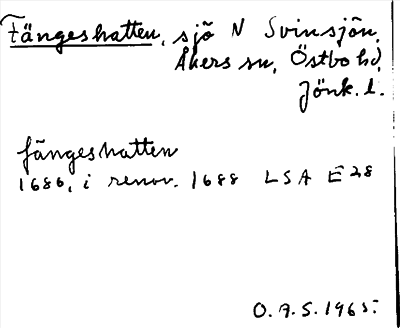 Fängeshatten, sjö N Svinsjön,
Åkers sn, Östbo hd,
Jönk. l.
fängeshatten
1686, i renov. 1688 LSA E 28
O. A. S. 1965.